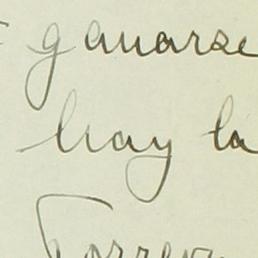 ganarse
hay la